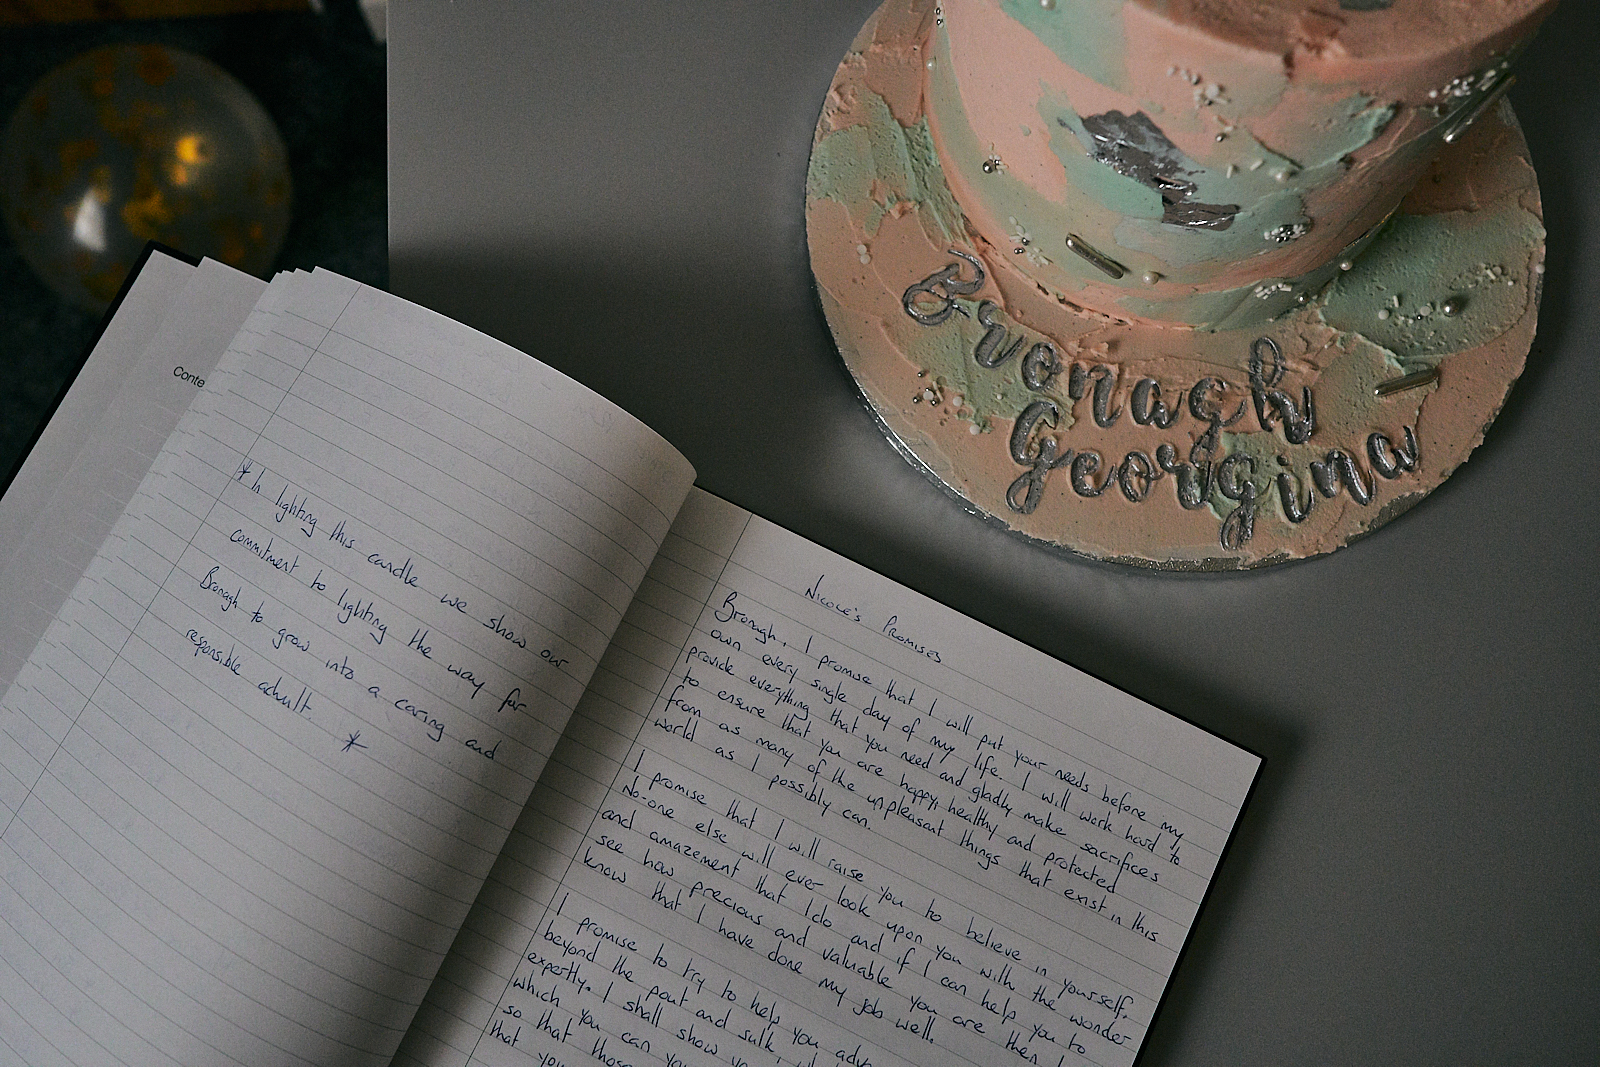 Bronagh
Georgina
Conte
* In lighting this candle we show our
commitment to lighting the way for
Bronagh to grow into a caring and
responsible adult. *
Nicole's Promises
Bronagh, I promise that I will put your needs before my
own every single day of my life. I will work hard to
provide everything that you need and gladly make sacrifices
to ensure that you are happy, healthy and protected
from as many of the unpleasant things that exist in this
world as I possibly can.
I promise that I will raise you to believe in yourself.
No-one else will ever look upon you with the wonder
and amazement that I do and if I can help you to
see how precious and valuable you are then I
know that I have done my job well.
I promise to try to help you
beyond the pout and sulk,
expertly. I shall show
which you can
so that those
that you